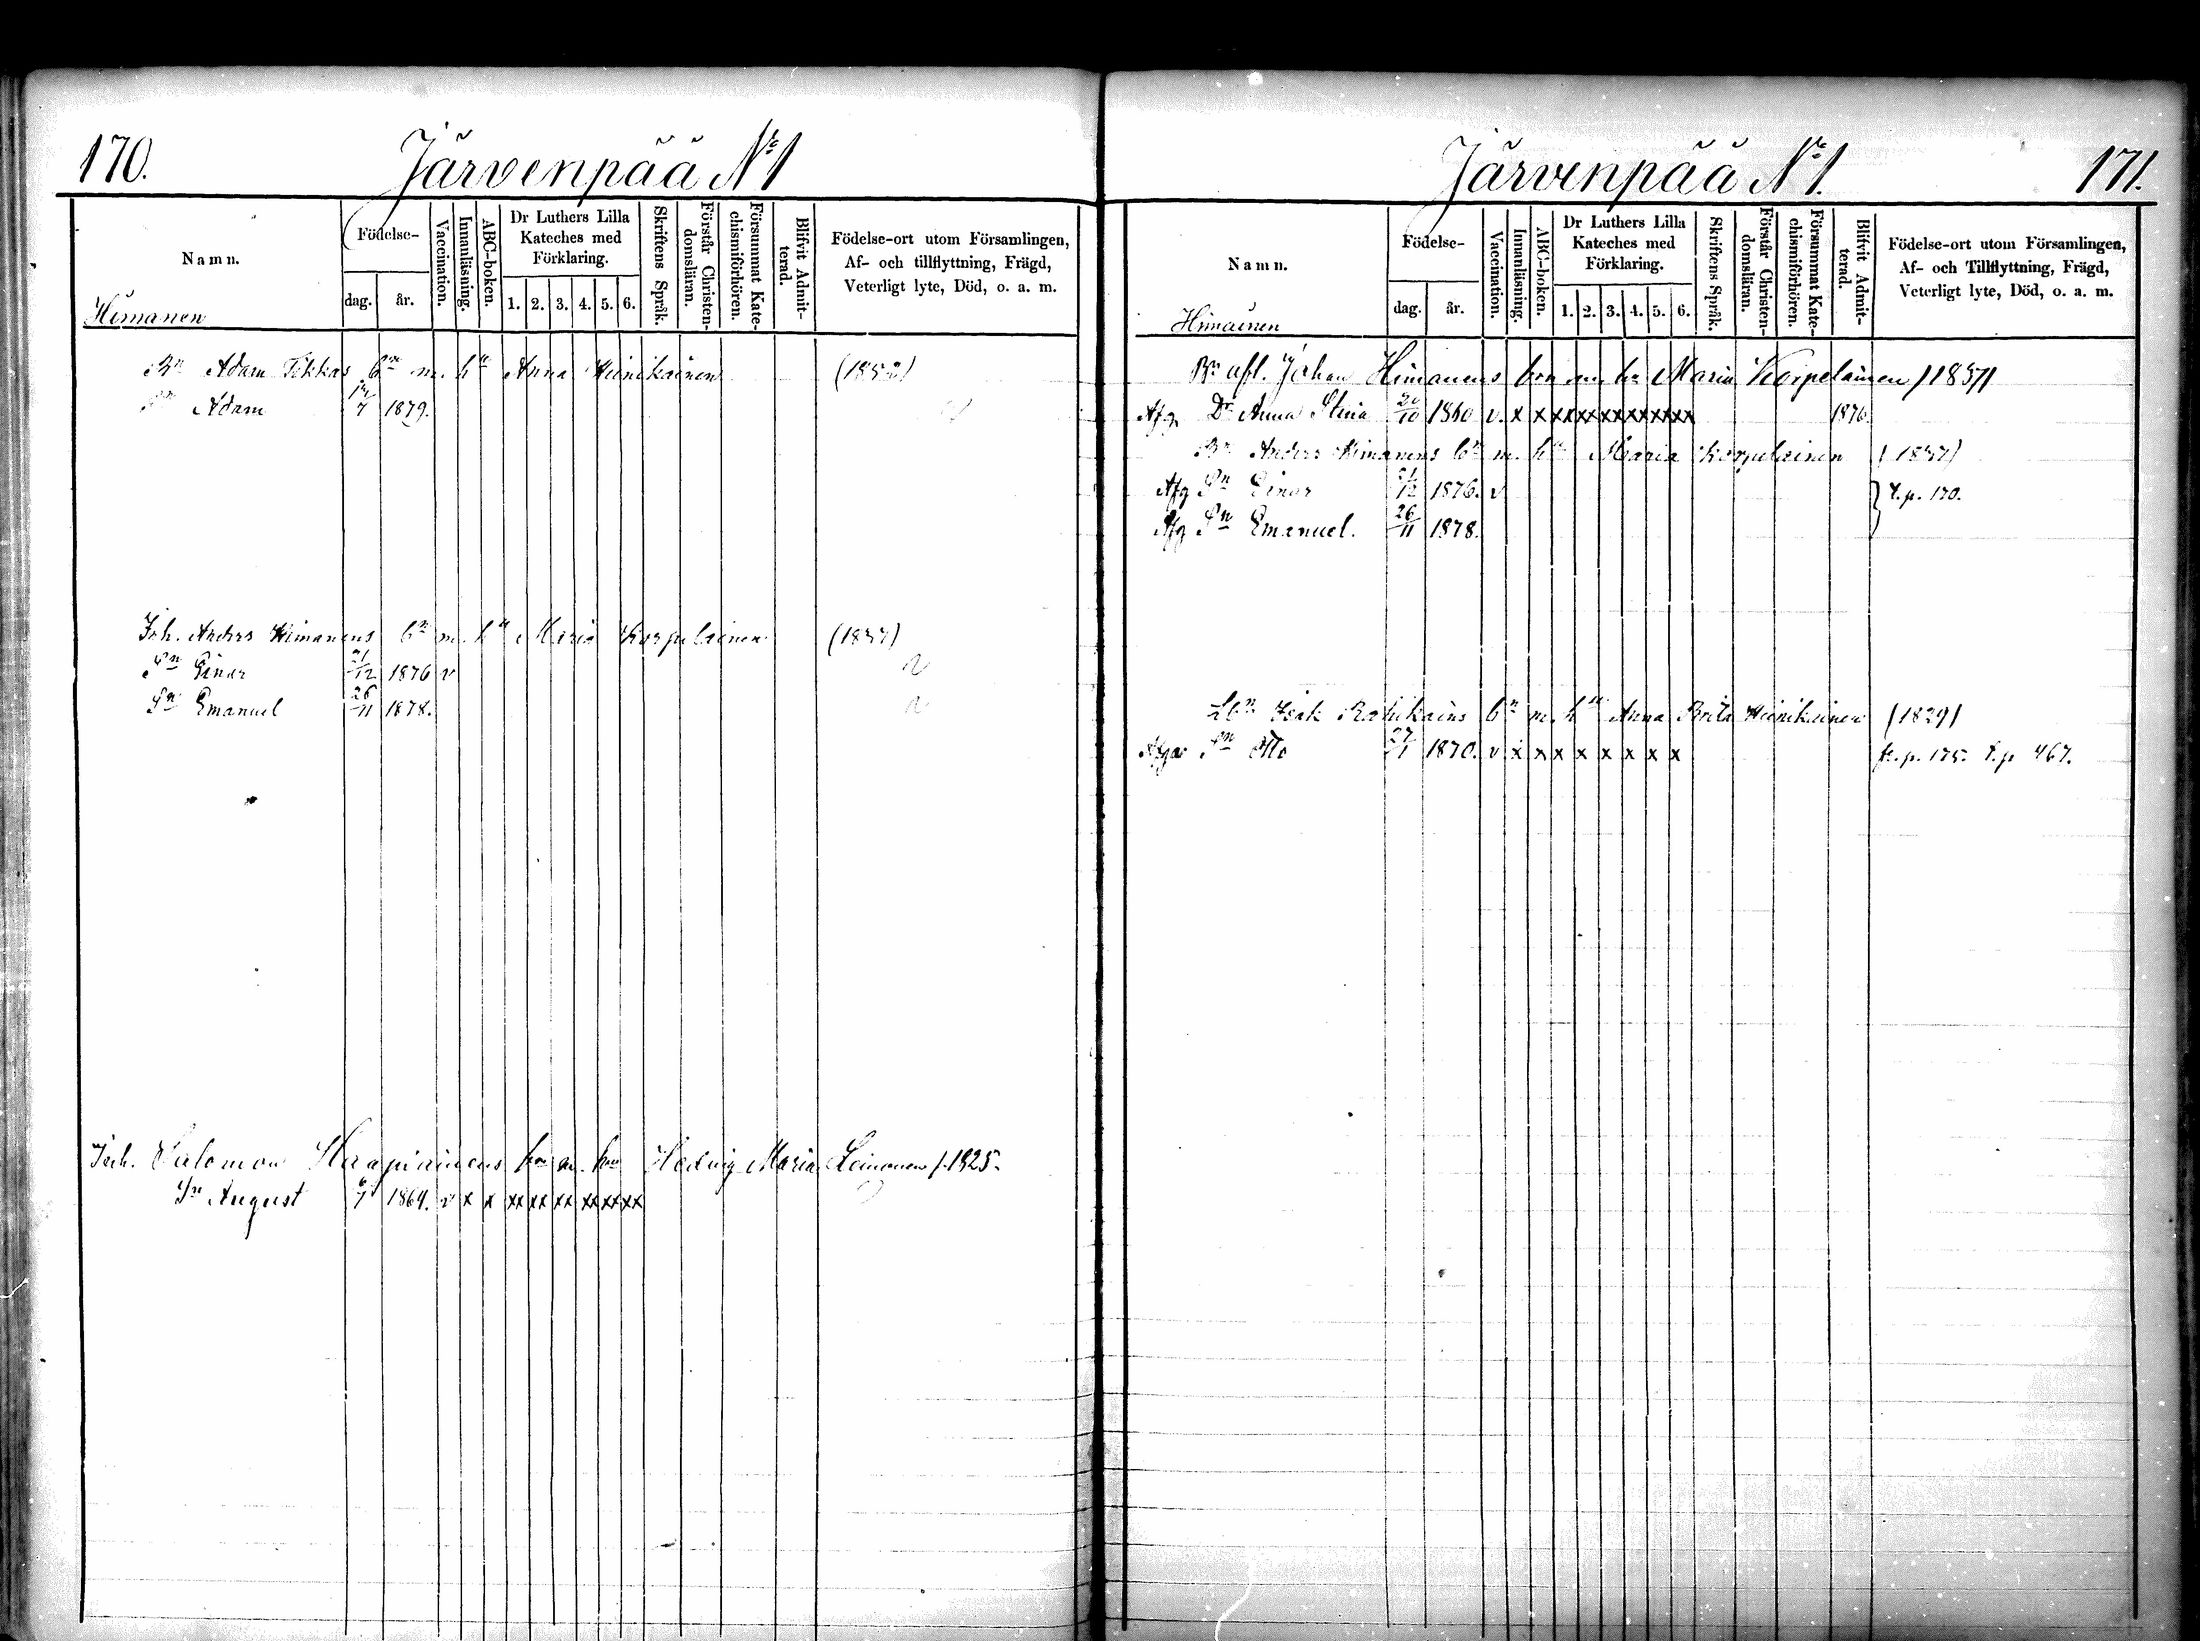 170.
Järvenpää No 1
Namn.
Födelse-
dag.
år.
Vaccination.
Innanläsning.
ABC-boken.
Dr Luthers Lilla
Kateches med
Förklaring.
1. 2. 3. 4. 5. 6.
Skriftens Språk.
Förstår Christen-
domsläran.
Försummat Kate-
chismiförhören.
Blifvit Admit-
terad.
Födelse-ort utom Församlingen,
Af- och tillflyttning, Frägd,
Veterligt lyte, Död, o. a. m.
Himanen
Bn Adam Tikkas bn m. hn Anna Heinikainen (1852)
Sn Adam 7 1879.
Inh. Anders Himanens bn m. hn Maria Korpelainen (1857)
Sn Einar 21/12 1876 v
Sn Emanuel 26/11 1878.
Inh. Salomon Haapiainens bn m. hn Hedvig Maria Leinonen f. 1825.
Sn August 6/7 1864. v x x xx xx xx xx xx xx
Järvenpää No 1.
171.
Namn.
Födelse-
dag.
år.
Vaccination.
Innanläsning.
ABC-boken.
Dr Luthers Lilla
Kateches med
Förklaring.
1. 2. 3. 4. 5. 6.
Skriftens Språk.
Förstår Christen-
domsläran.
Försummat Kate-
chismiförhören.
Blifvit Admit-
terad.
Födelse-ort utom Församlingen,
Af- och Tillflyttning, Frägd,
Veterligt lyte, Död, o. a. m.
Himainen
Bn afl. Johan Himanens bn m. hn Maria Korpelainen /1837/
Afg. Dr Anna Stina 20/10 1860 v. x x xx xx xx xx xx xx 1876.
Bn Anders Himanens bn m. hn Maria Korpelainen (1857)
Afg Sn Einar 21/12 1876. v
Afg Sn Emanuel. 26/11 1878.
} t. p. 170.
Lbn Isak Ratikains bn m. hn Anna Brita Heinikainen (1829)
Sn Otto 27/1 1870. v x x x x x x x x fr. p. 175. t. p 467.